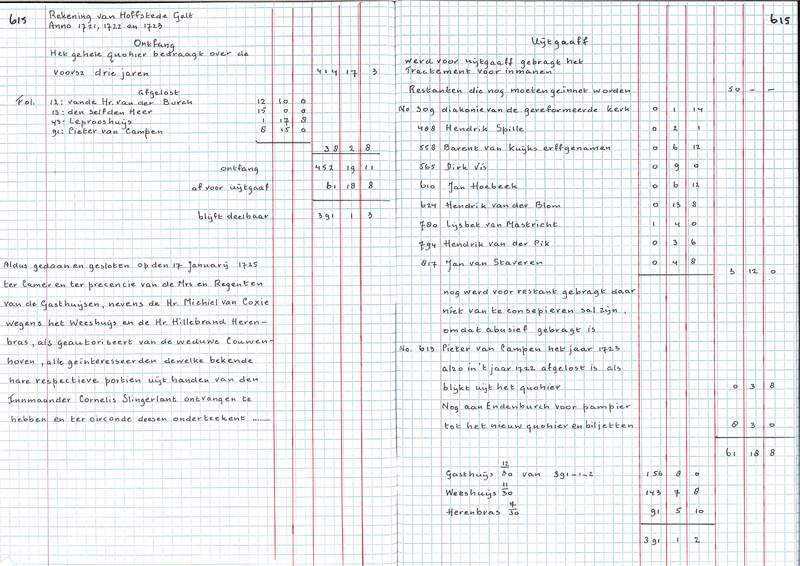 615
Rekening van Hoffstede Gelt
Anno 1721, 1722 en 1723
Ontfang
Het gehele quohier bedraagt over de
voorsz drie jaren 414 17 3
Afgelost
Fol. 12: vande Hr. van der Burch 12 10 0
13: den selfden Heer 15 0 0
43: Leprooshuijs 1 17 8
91: Pieter van Campen 8 15 0
38 2 8
ontfang 452 19 11
af voor uijtgaaf 61 18 8
blijft deelbaar 391 1 3
Aldus gedaan en gesloten op den 17 januarij 1725
ter Camer en ter precencie van de Mrs en Regenten
van de Gasthuijsen, nevens de Hr. Michiel van Coxie
wegens het Weeshuijs en de Hr. Hillebrand Heren-
bras, als geautoriseert van de weduwe Couwen-
hoven, alle geinteresseerden dewelke bekende
hare respective portien uijt handen van den
Innmaander Cornelis Slingerlant ontvangen te
hebben en ter oirconde deesen onderteekent ........
615
Uijtgaaff
werd voor uijtgaaff gebragt het
Tractement voor inmanen
Restanten die nog moeten geinnet worden 50 - -
No 309 diakonie van de gereformeerde kerk 0 1 14
408 Hendrik Spille 0 2 1
558 Barent van Kuijks erffgenamen 0 6 12
565 Dirk Vis 0 9 0
610 Jan Hoebeek 0 6 12
624 Hendrik van der Blom 0 13 8
780 Lijsbet van Mastricht 1 4 0
794 Hendrik van der Pik 0 3 6
817 Jan van Staveren 0 4 8
3 12 0
nog werd voor restant gebragt daar
niet van te consepieren sal zijn,
omdat abusief gebragt is
No. 613 Pieter van Campen het jaar 1723
alzo in't jaar 1722 afgelost is als
blijkt uijt het quohier 0 3 8
Nog aan Endenburch voor pampier
tot het nieuw quohier en biljetten 8 3 0
61 18 8
Gasthuijs 12/30 van 391-1-2 156 8 0
Weeshuijs 11/30 143 7 8
Herenbras 7/30 91 5 10
391 1 2